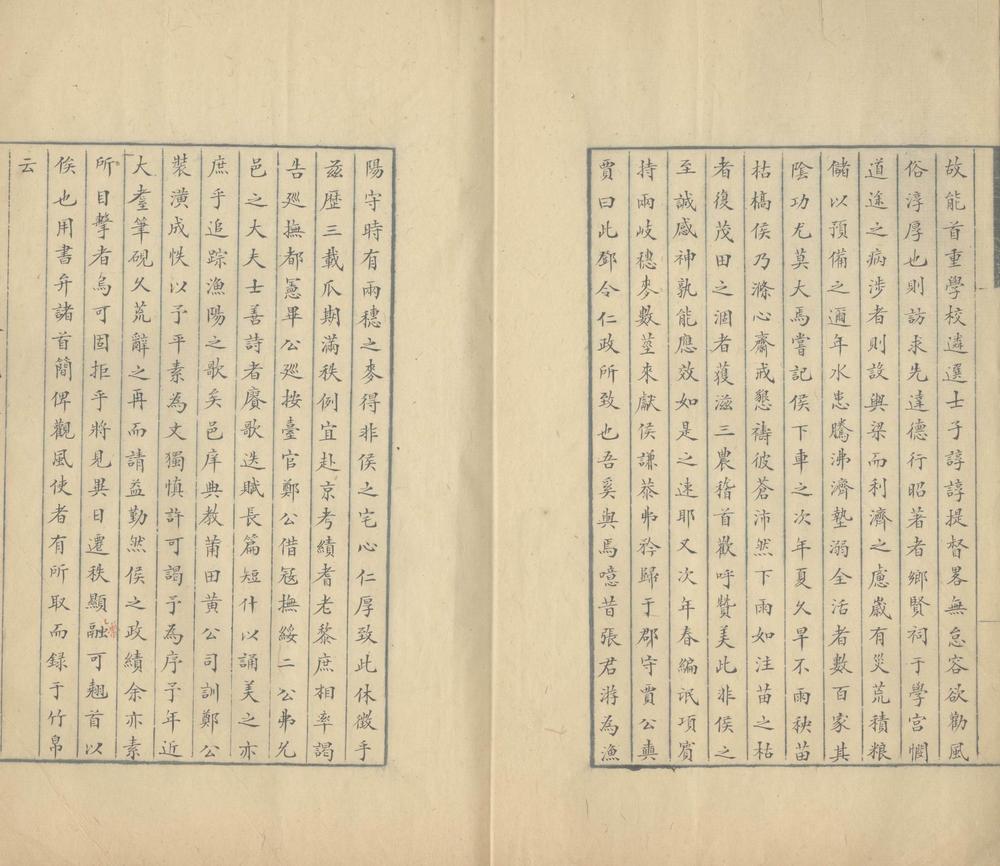 故能首重學校遴選士子諄諄提督畧無怠容欲勸風
俗淳厚也則訪求先達德行昭著者鄉賢祠于學宮憫
道途之病涉者則設輿梁而利濟之慮歲有災荒積粮
儲以預備之邇年水患騰沸濟墊溺全活者數百家其
陰功尤莫大焉嘗記侯下車之次年夏久旱不雨秧苗
枯槁侯乃滌心齋戒懇禱彼蒼沛然下雨如注苗之枯
者復茂田之涸者獲滋三農稽首歡呼贊美此非侯之
至誠感神孰能應效如是之速耶又次年春編氓項賔
持兩岐穗麥數莖來獻侯謙恭弗矜歸于郡守賈公
賈曰此鄧令仁政所致也吾奚與焉噫昔張君游為漁
陽守時有兩穗之麥得非侯之宅心仁厚致此休徵乎
兹歷三載瓜期滿秩例宜赴京考績耆老黎庶相率謁
告廵撫都憲畢公廵按臺官鄭公借冦撫綏二公弗允
邑之大夫士善詩者賡歌迭賦長篇短什以誦美之亦
庶乎追踪漁陽之歌矣邑庠典教莆田黄公司訓鄭公
裝潢成帙以予平素為文獨慎許可謁予為序予年近
大耋筆硯久荒辭之再而請益勤然侯之政績余亦素
所目擊者烏可固拒乎將見異日遷秩顯融可翹首以
俟也用書弁諸首簡俾觀風使者有所取而録于竹帛
云